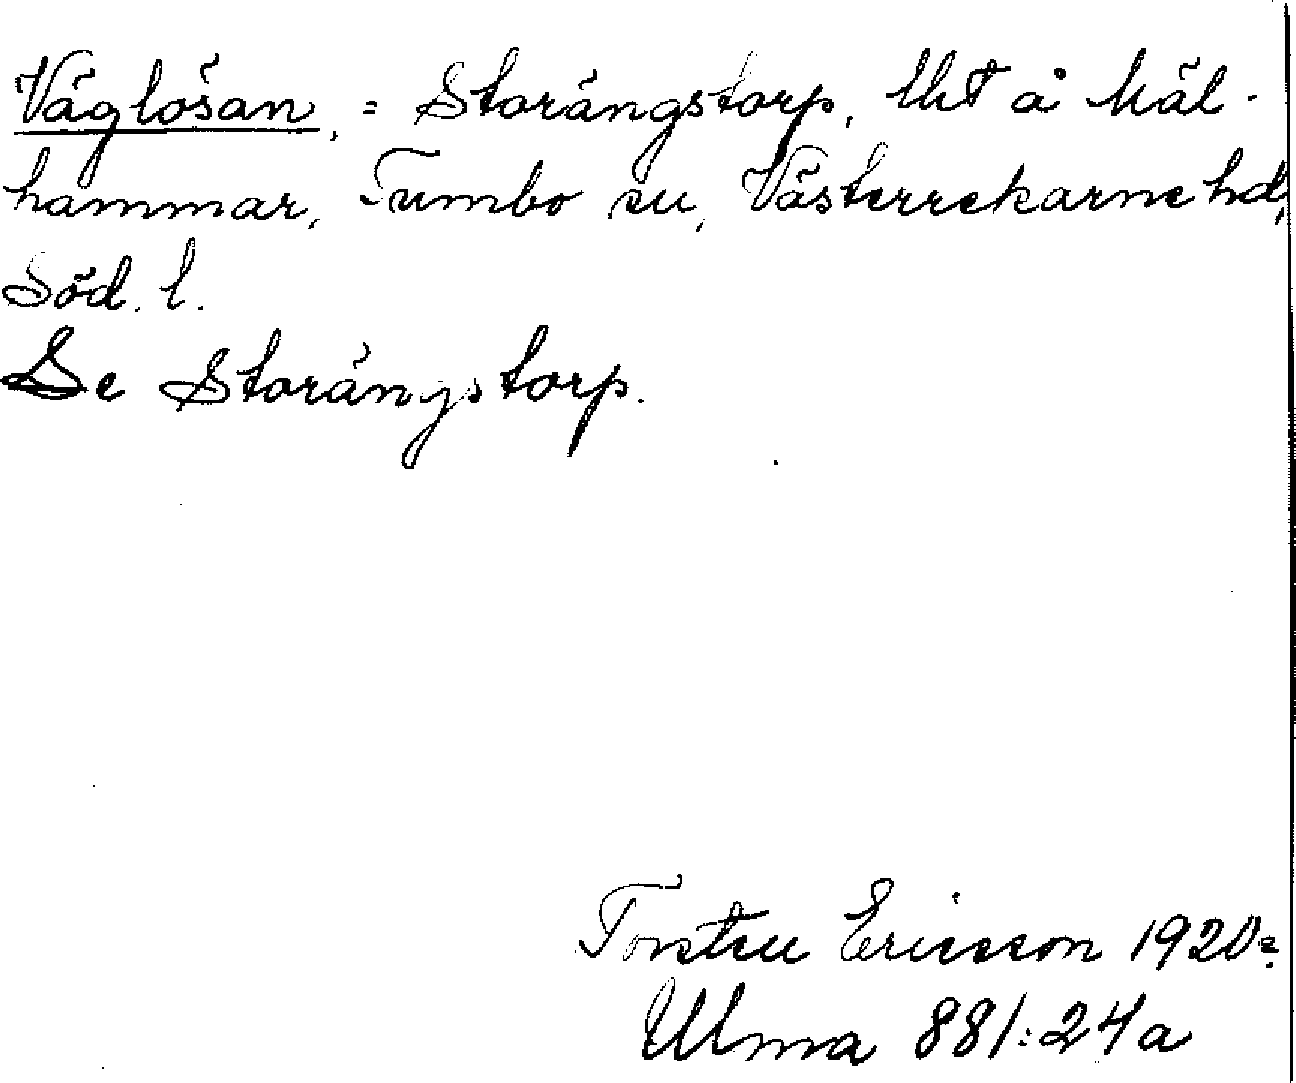 Väglösan, = Storängstorp, Uht å Mäl-
hammar, Tumbo sn, Västerrekarne hd,
Söd. l.
Se Storängstorp.
Torsten Ericsson 1920
Ulma 881:24a